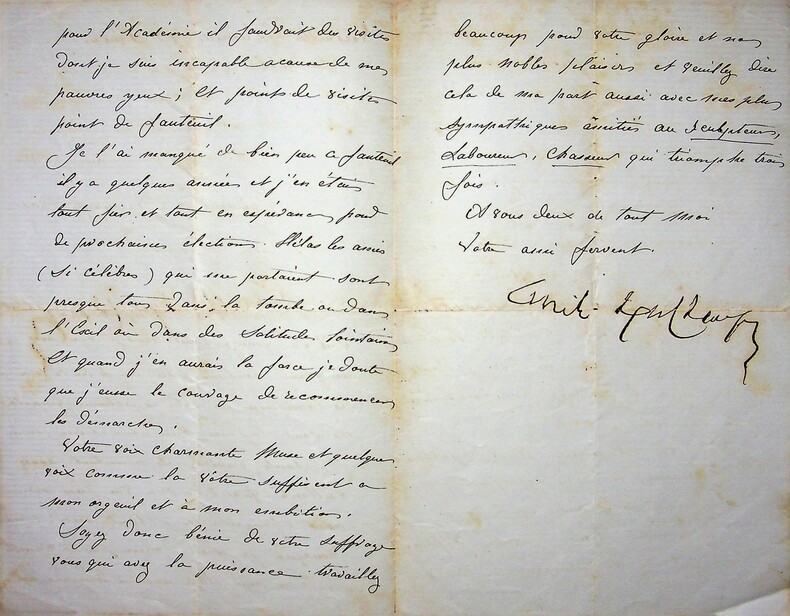 pour l'Académie il faudrait des visites
dont je suis incapable acause de mes
pauvres yeux ; Et point de visites
point de fauteuil.
Je l'ai manqué de bien peu ce fauteuil
il y a quelques années et j'en étais
tout fier et tout en espérances pour
de prochaines élections. Hélas les amis
(si célèbres) qui me portaient sont
presque tous dans la tombe ou dans
l'Exil ou dans des solitudes lointaines
Et quand j'en aurais la force je doute
que j'eusse le courage de recommencer
les démarches.
Votre voix charmante Muse et quelques
voix comme la vôtre suffisent a
mon orgeuil et à mon ambition.
Soyez donc bénie de votre suffrage
vous qui avez la puissance travaillez
beaucoup pour votre gloire et nos
plus nobles plaisirs et veuillez dire
cela de ma part aussi avec mes plus
sympathiques amitiés au Sculpteur,
Laboureur, Chasseur qui triomphe trois
fois.
A vous deux de tout moi
Votre ami fervent.
Emile Deschamps